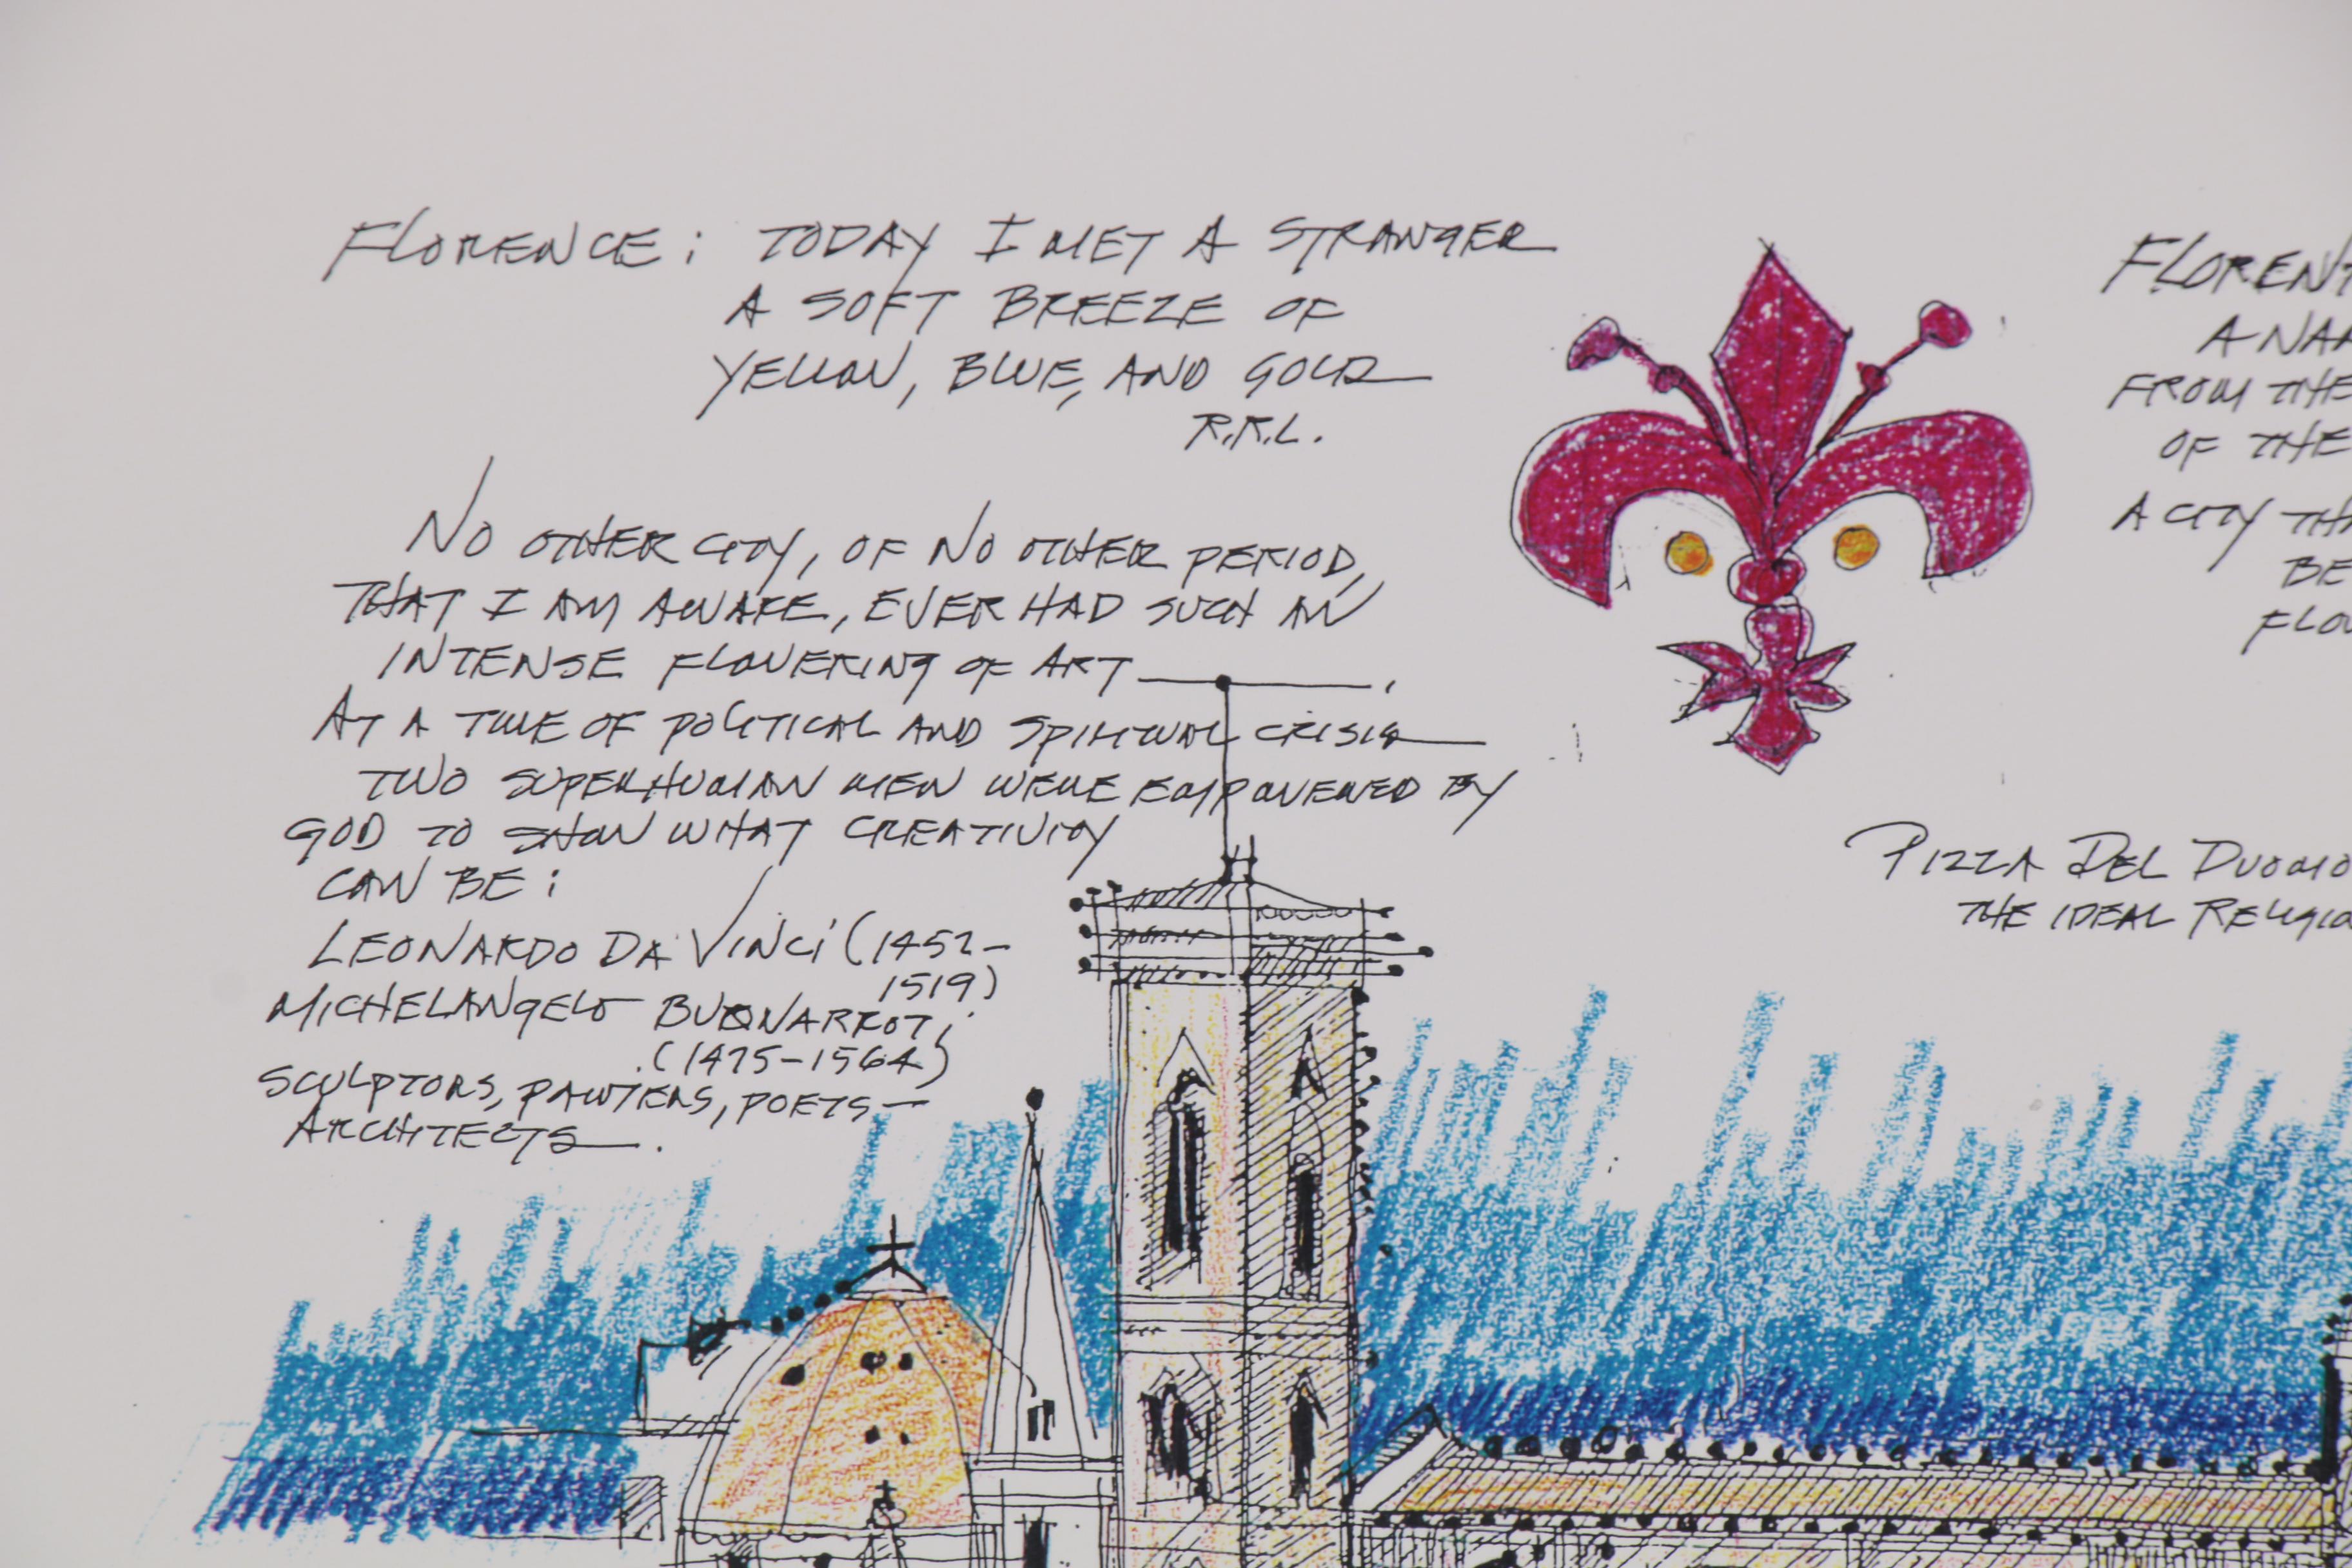 FLORENCE: TODAY I MET A STRANGER
A SOFT BREEZE OF
YELLOW, BLUE, AND GOLD
R.R.L.
NO OTHER CITY, OF NO OTHER PERIOD,
THAT I AM AWARE, EVER HAD SUCH AN
INTENSE FLOWERING OF ART
AT A TIME OF POLITICAL AND SPIRITUAL CRISIS
TWO SUPERHUMAN MEN WERE EMPOWERED BY
GOD TO SHOW WHAT CREATIVITY
CAN BE:
LEONARDO DA VINCI (1452-
1519)
MICHELANGELO BUONARROTI
(1475-1564)
SCULPTORS, PAINTERS, POETS -
ARCHITECTS.
FLORENT
A NAM
FROM THE
OF THE
A CITY TH
BE
FLOW
PIZZA DEL DUOMO
THE IDEAL RELIGIO